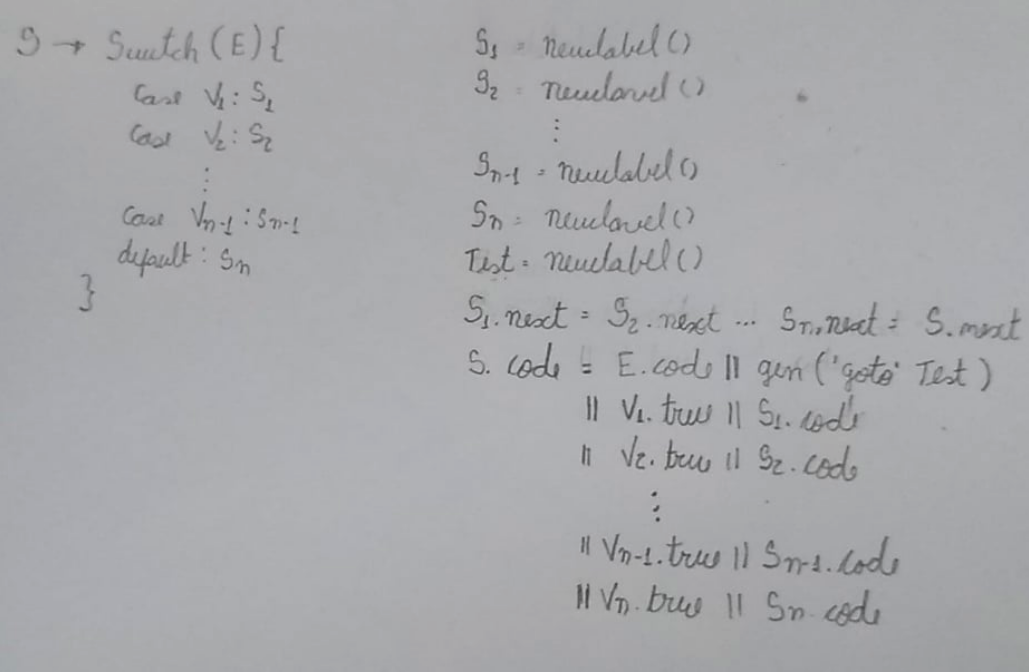 S → Switch (E) {
Case V₁ : S₁
Case V₂ : S₂
⋮
Case Vn-1 : Sn-1
default : Sn
}
S₁ = newlabel ()
S₂ = newlabel ()
⋮
Sn-1 = newlabel ()
Sn = newlabel ()
Test = newlabel ()
S₁.next = S₂.next ... Sn.next = S.next
S.code = E.code || gen ('goto' Test)
|| V₁.true || S₁.code
|| V₂.true || S₂.code
⋮
|| Vn-1.true || Sn-1.code
|| Vn.true || Sn.code